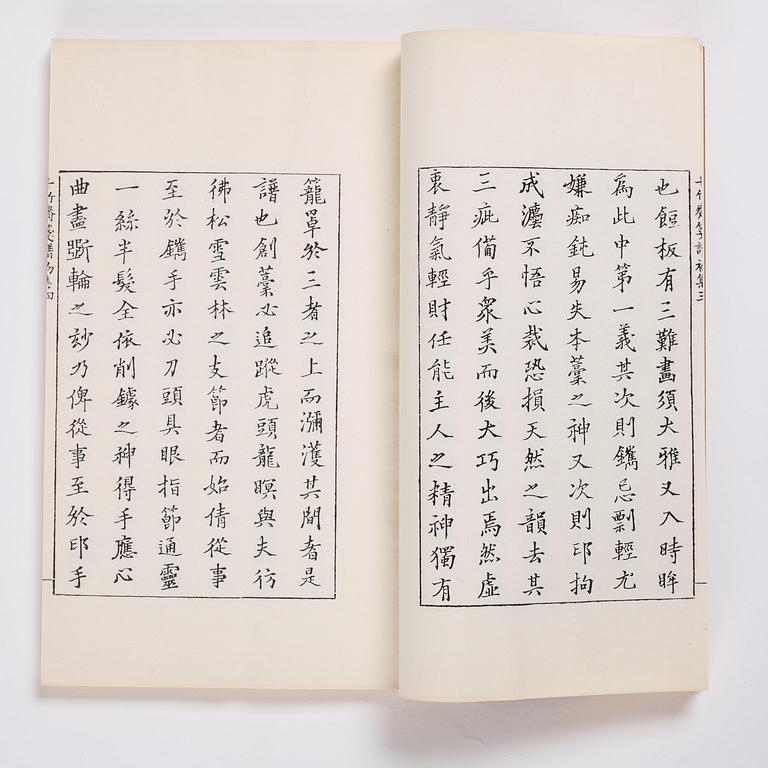 十竹齋箋譜初集三
也餖板有三難畫須大雅又入時眸
為此中第一義其次則鐫忌剽輕尤
嫌痴鈍易失本藁之神又次則印拘
成灋不悟心裁恐損天然之韻去其
三疵備乎衆美而後大巧出焉然虛
衷靜氣輕財任能主人之精神獨有
籠罩於三者之上而瀰濩其間者是
譜也創藁必追蹤虎頭龍瞑與夫彷
彿松雪雲林之支節者而始倩從事
至於鐫手亦必刀頭具眼指節通靈
一絲半髮全依削鐻之神得手應心
曲盡斲輪之玅乃俾從事至於印手
十竹齋箋譜初集四